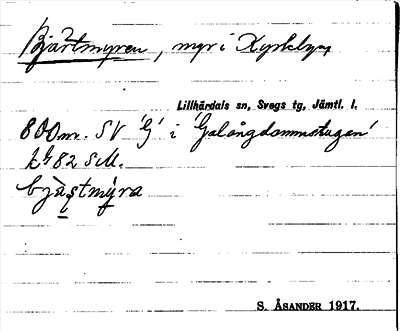 Bjästmyren, myr i Kyrkbyn
Lillhärdals sn, Svegs tg, Jämtl. l.
800 m. SV 'G' i 'Galångdammstugan'
kbl 82 SM.
bjästmýra
S. ÅSANDER 1917.